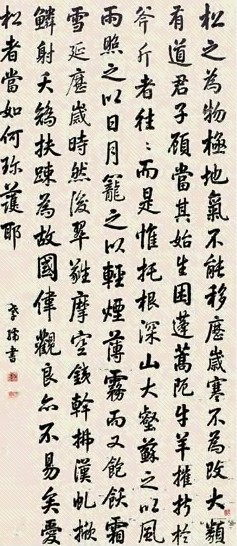 松之為物極地氣不能移歷歲寒不為改大類
有道君子顧當其始生困蓬蒿阨牛羊摧折於
斧斤者往々而是惟托根深山大壑蘇之以風
雨照之以日月籠之以輕煙薄霧而又飽飫霜
雪延歷歲時然後翠鬣摩空鐵幹拂漢虬掀
鱗射夭矯扶疎為故國偉觀良亦不易矣愛
松者當如何弥護耶
書